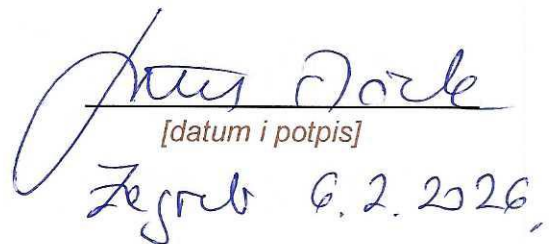 [datum i potpis]
Zagreb 6.2.2026,